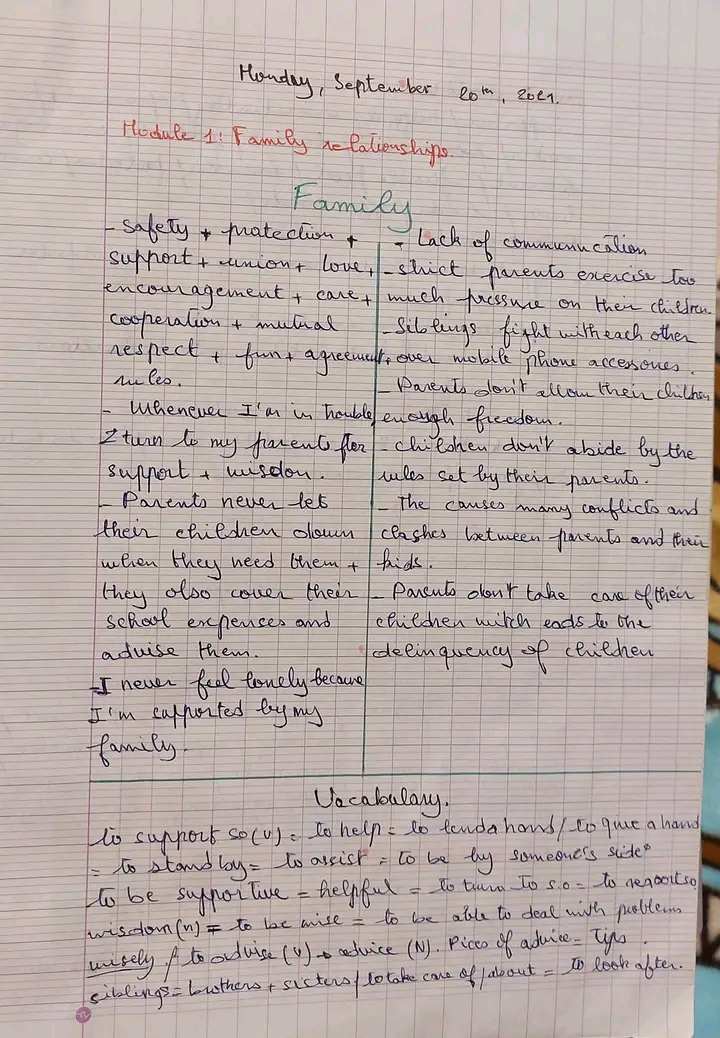 Monday, September 20th, 2021.
Module 1: Family relationships.
Family
- Safety + protection +
support + union + love +
encouragement + care +
cooperation + mutual
respect + fun + agreement +
rules.
- Whenever I'm in trouble
I turn to my parents for
support + wisdom.
- Parents never let
their children down
when they need them +
they also cover their
school expenses and
advise them.
- I never feel lonely because
I'm supported by my
family.
- Lack of communication
- strict parents exercise too
much pressure on their children
- Siblings fight with each other
over mobile phone accessories.
- Parents don't allow their children
enough freedom.
- children don't abide by the
rules set by their parents.
- The causes many conflicts and
clashes between parents and their
kids.
- Parents don't take care of their
children witch eads to the
delinquency of children
Vocabulary.
to support so (v) = to help = to lend a hand / to give a hand
= to stand by = to assist = to be by someone's side
to be supportive = helpful = to turn To s.o = to resort so
wisdom (n) = to be wise = to be able to deal with problems
wisely / to advise (v) → advice (N). Pices of advice = Tips.
siblings = brothers + sisters / to take care of / about = to look after.